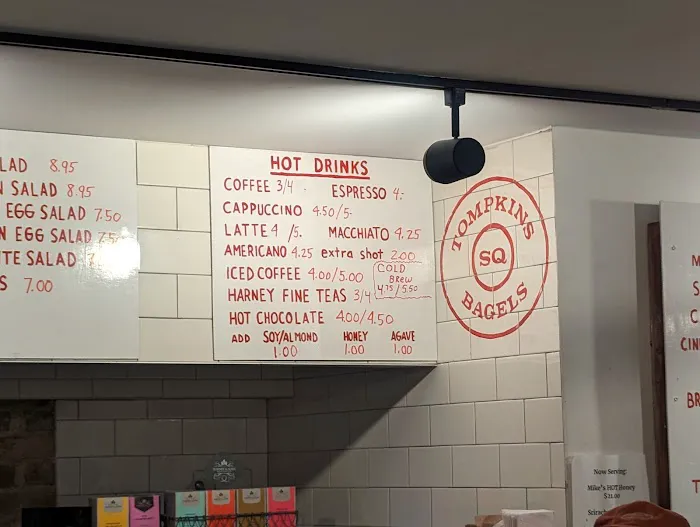 LAD 8.95
N SALAD 8.95
EGG SALAD 7.50
N EGG SALAD 7.5
TE SALAD
S 7.00
HOT DRINKS
COFFEE 3/4 ESPRESSO 4.
CAPPUCCINO 4.50/5-
LATTE 4 /5. MACCHIATO 4.25
AMERICANO 4.25 extra shot 2.00
ICED COFFEE 4.00/5.00
COLD
BREW
4.75/5.50
HARNEY FINE TEAS 3/4
HOT CHOCOLATE 4.00/4.50
ADD SOY/ALMOND HONEY AGAVE
1.00 1.00 1.00
TOMPKINS
SQ
BAGELS
M
S
C
CIN
BR
T
Now Serving:
Mike's HOT Honey
$11.00
Srirach